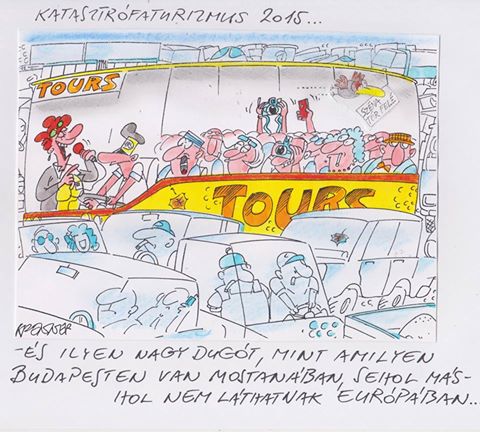 KATASZTRÓFATURIZMUS 2015...
TOURS
SZÉNA
TÉR FELÉ
TOURS
-ÉS ILYEN NAGY DUGÓT, MINT AMILYEN
BUDAPESTEN VAN MOSTANÁBAN, SEHOL MÁS-
HOL NEM LÁTHATNAK EURÓPÁBAN...